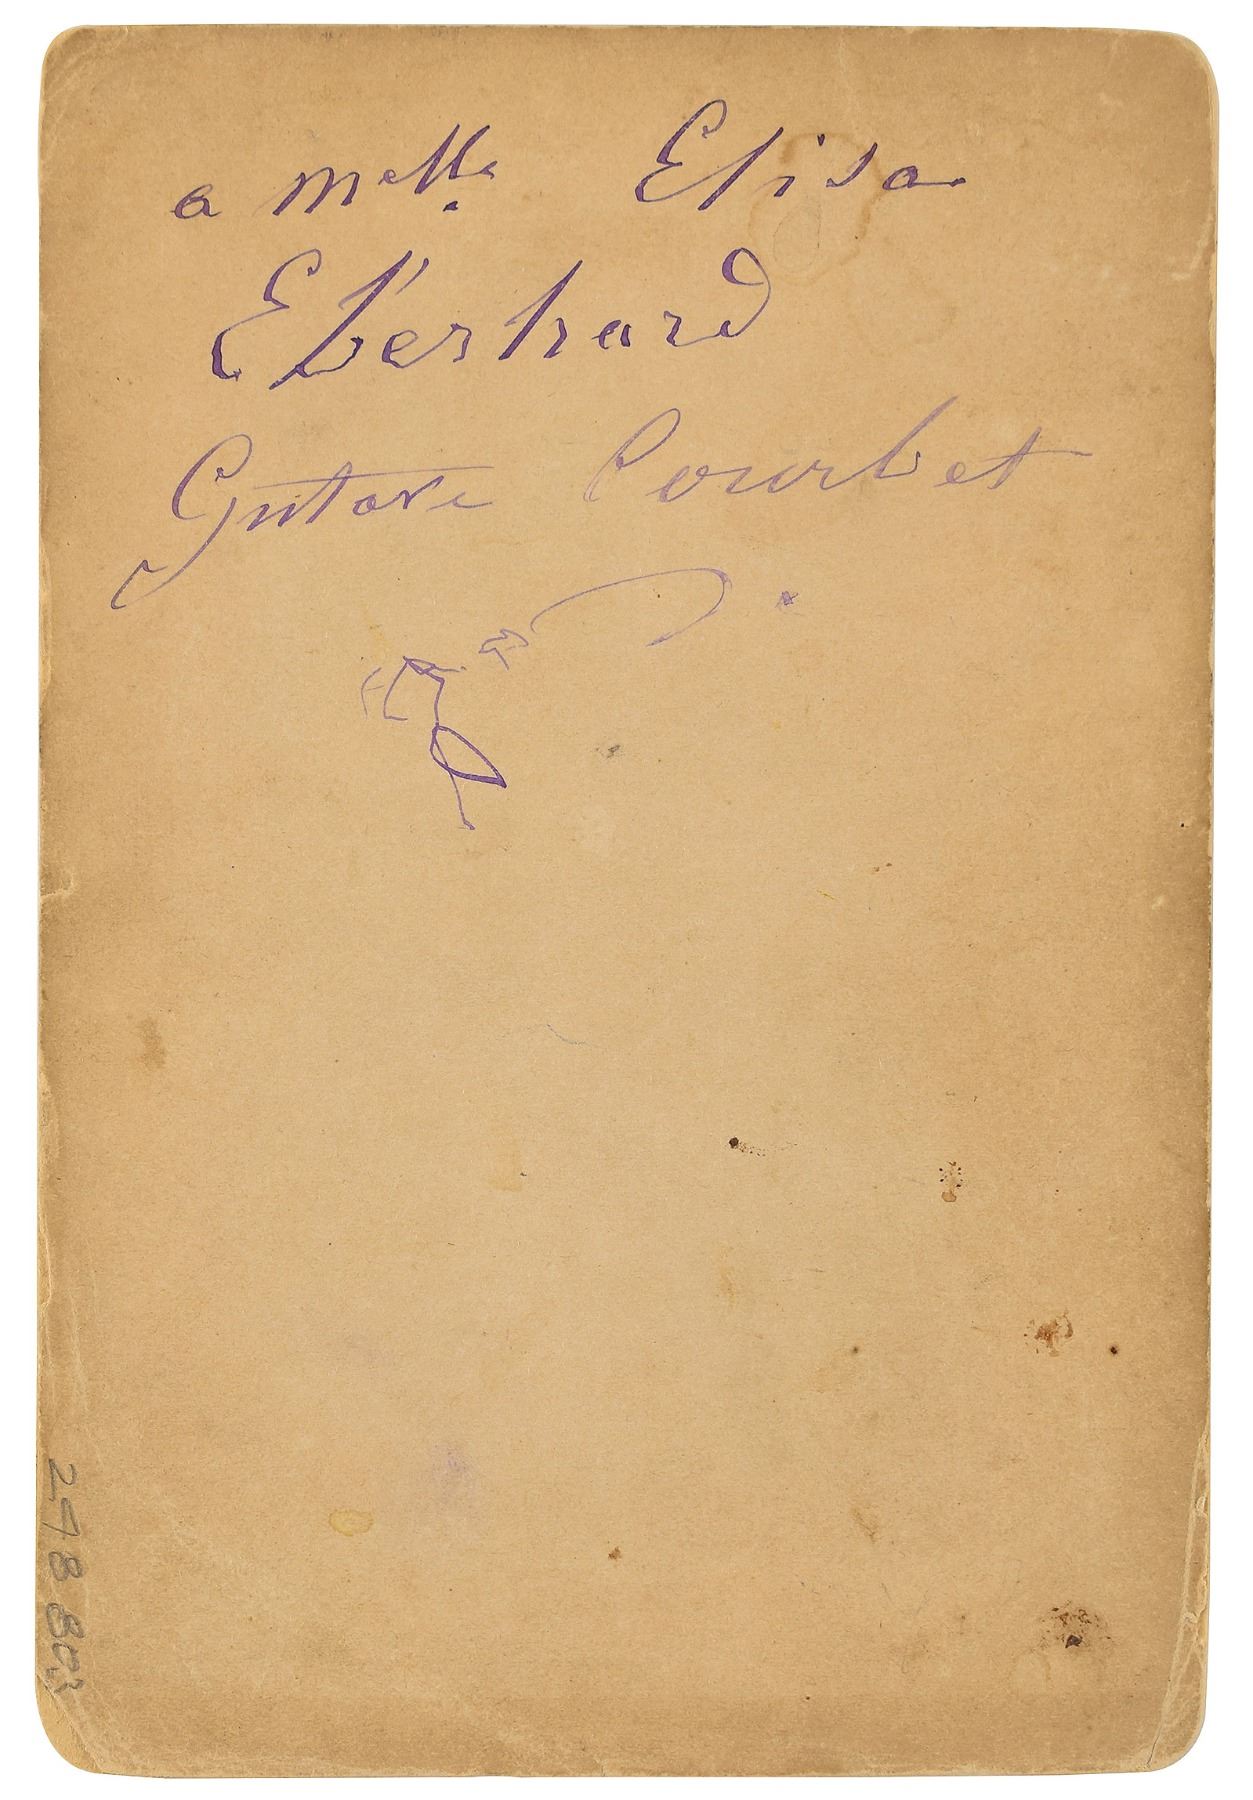 a Melle Elisa
Eberhard
Gustave Courbet